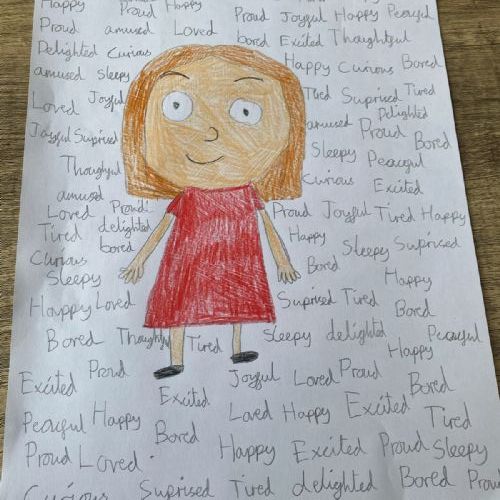 Happy Proud Happy Proud Joyful Happy Peaceful
Proud amused Loved bored Excited Thoughtful
Delighted Curious Happy Curious Bored
amused Sleepy Tired Suprised Tired
Loved Joyful amused Proud Delighted
Joyful Suprised Sleepy Peaceful Bored
Thoughtful Curious Excited
amused
Loved Proud Proud Joyful Tired Happy
Tired delighted Happy Sleepy Suprised
Curious bored Bored
Sleepy Happy
Happy Loved Suprised Tired Bored
Bored Thoughtful Tired Sleepy delighted Peaceful
Happy
Excited Proud Excited Joyful Loved Proud Bored
Peaceful Happy Bored Loved Happy Excited Tired
Proud Loved Happy Excited Proud Sleepy
Curious Suprised Tired delighted Bored